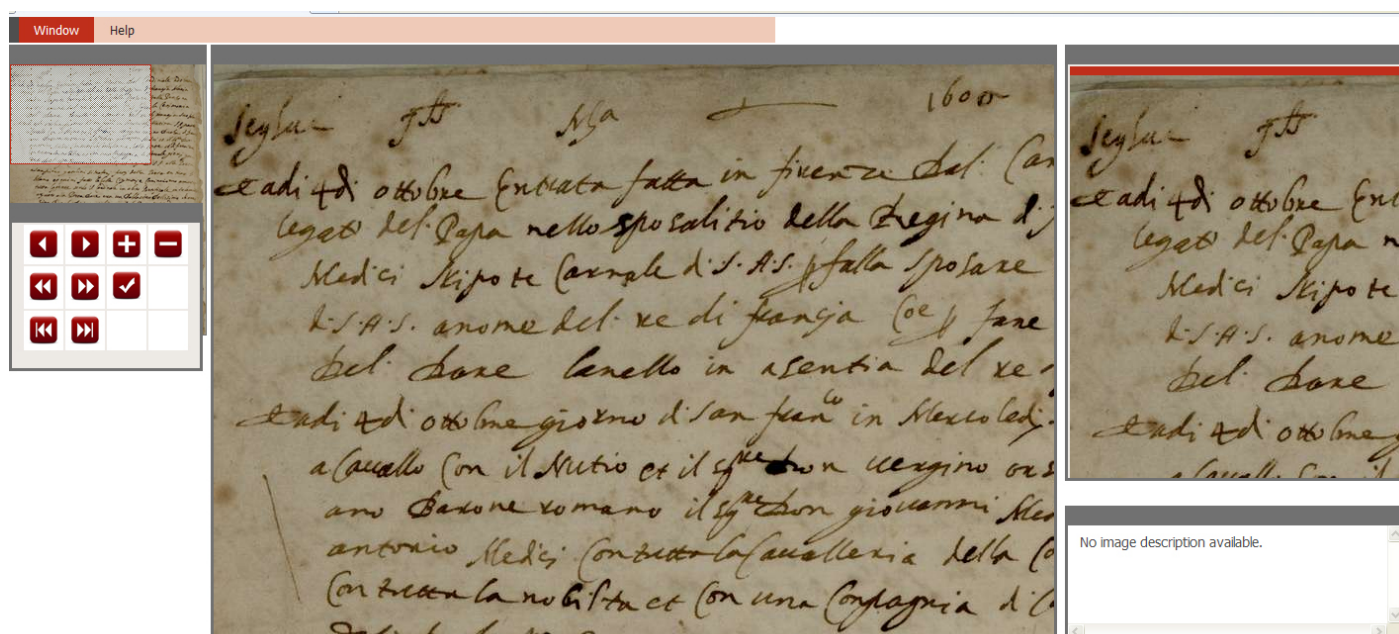 Window Help
1600
e adi 4 di ottobre Entrata fatta in firenze dal Car
legato del Papa nello sposalitio della Regina di
Medici Nipote Carnale di S.A.S. falla sposare
d.S.A.S. anome del re di francia fare
Del in asentia del re
e adi 4 di ottobre giorno di san franco in Mercoledi
a Cavallo Con il Nutio et il sgre Don vergino ors
ano Barone romano il sgre Don giovanni Med
antonio Medici Con tutta la Cavalleria della
Con tutta la nobilta et Con una Compagnia di
e adi 4 di ottobre Ent
legato del Papa n
Medici Nipote
d.S.A.S. anome
Del
e adi 4 di ottobre
No image description available.